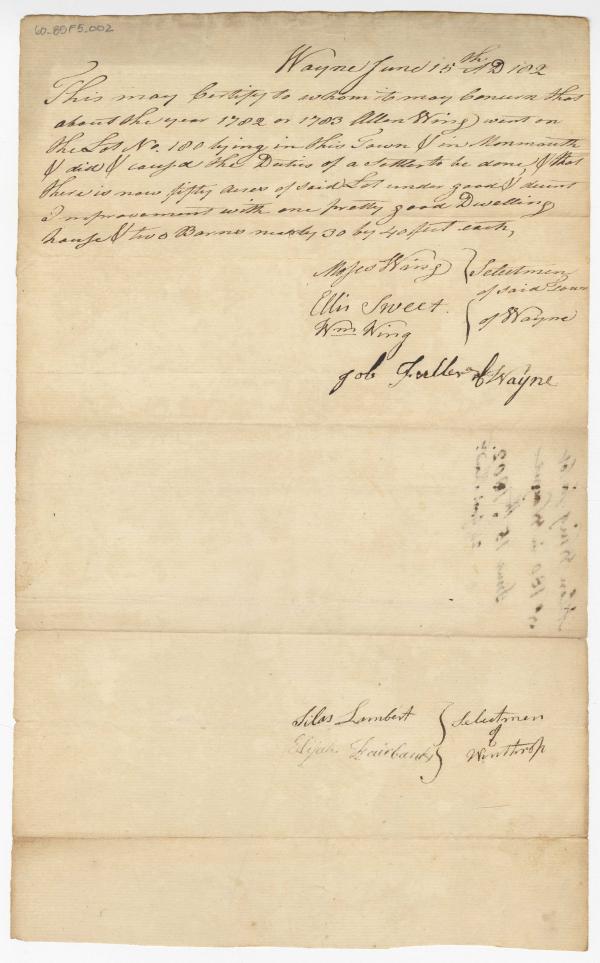 60-80F5.002
Wayne June 15th AD 182
This may Certify to whom it may Concern that
about the year 1782 or 1783 Allen Wing went on
the Lot No. 180 lying in this Town & in Monmouth
& did & caus'd the Duties of a Settler to be done, & that
there is now fifty acres of said Lot under good & decent
Improvement with one pretty good Dwelling
house & two Barns nearly 30 by 40 feet each,
Moses Wing } Selectmen
Ellis Sweet. of said Town
Wm Wing } of Wayne
Job Fuller of Wayne
Silas Lambert } Selectmen
of
Elijah Fairbanks } Winthrop